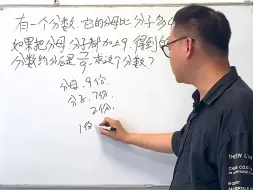 有一个分数,它的分母比分子多
如果把分母 分子都加上9,得到的
分数约分后是7/9,求这个分数?
分母:9份
分子:7份
2份
1份